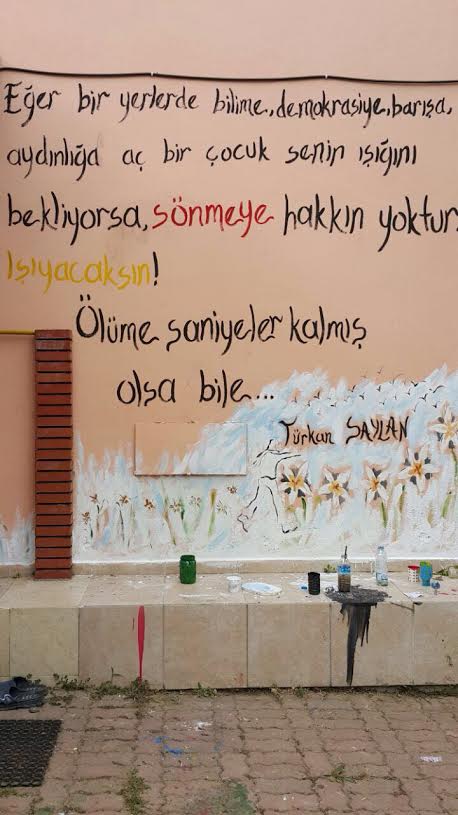 Eğer bir yerlerde bilime, demokrasiye, barışa,
aydınlığa aç bir çocuk senin ışığını
bekliyorsa, sönmeye hakkın yoktur.
Işıyacaksın!
Ölüme saniyeler kalmış
olsa bile...
Türkan SAYLAN